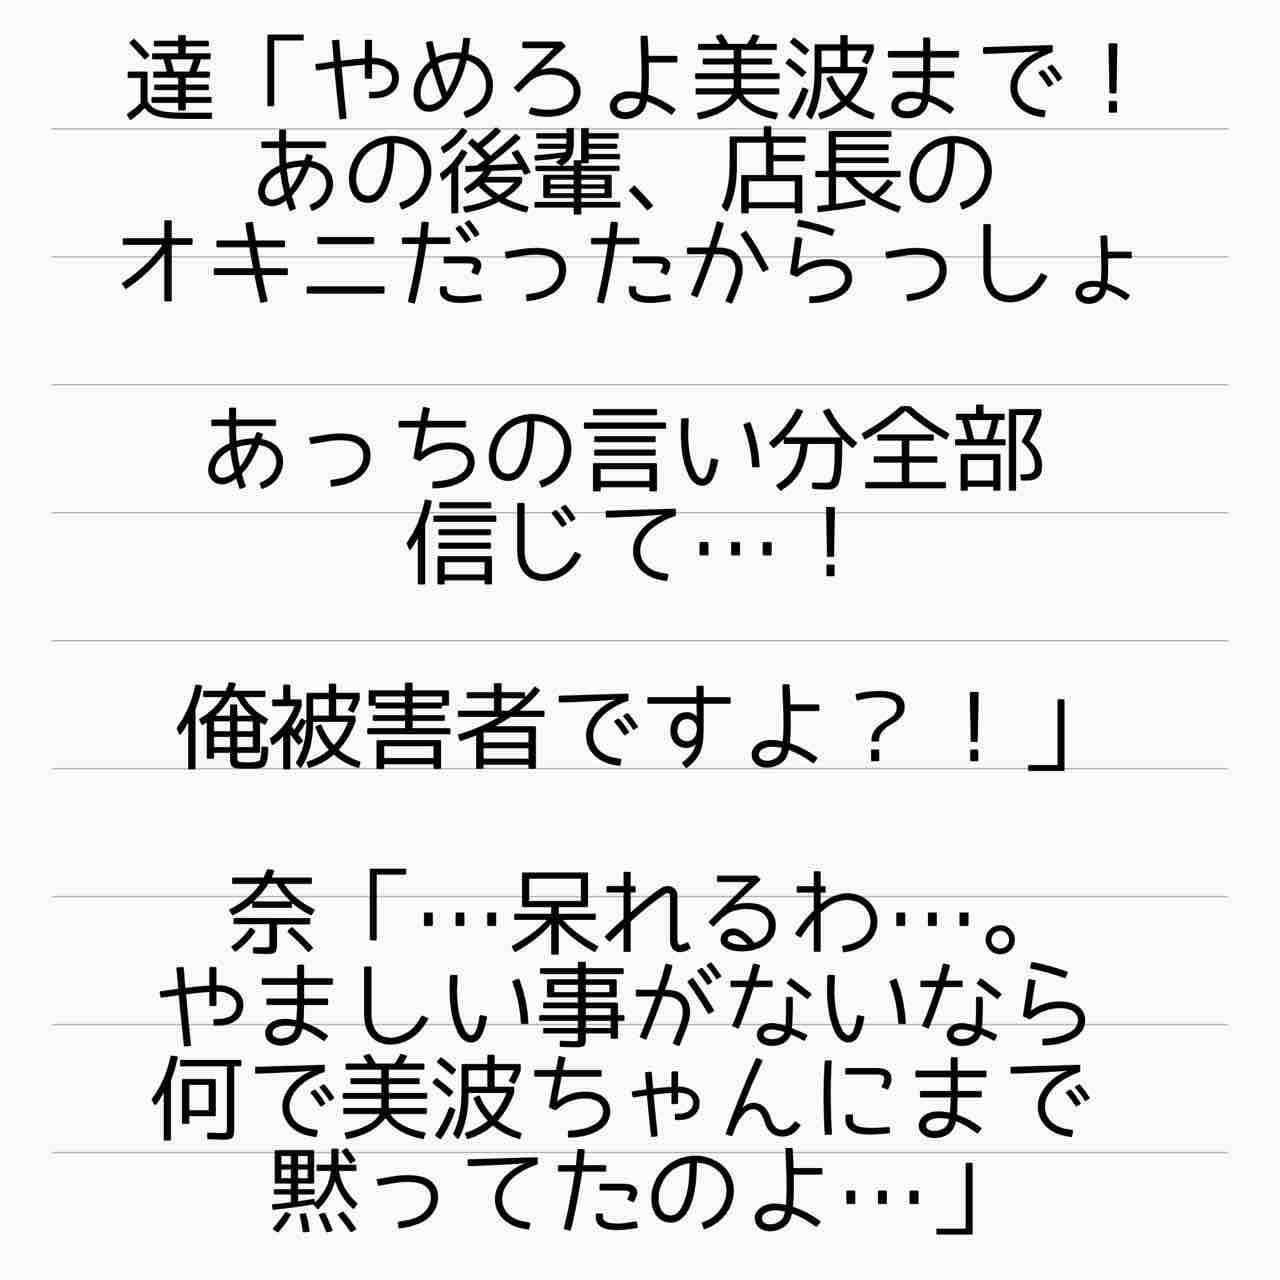 達「やめろよ美波まで！
あの後輩、店長の
オキニだったからっしょ
あっちの言い分全部
信じて…！
俺被害者ですよ？！」
奈「…呆れるわ…。
やましい事がないなら
何で美波ちゃんにまで
黙ってたのよ…」